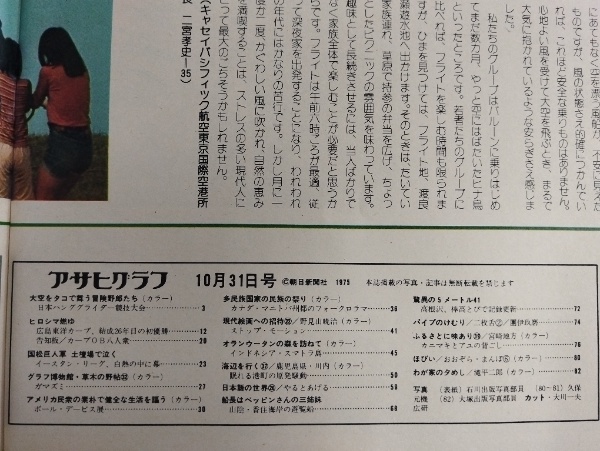 にあてもなく空を漂う風船が、不意に見えた
ものですが、風の状態さえ的確につかんでい
れば、これほど安全な乗りものはありません。
心地よい風を受けて大空を飛ぶとき、まるで
大気に抱かれているような安らぎさえ感じま
した。
私たちのグループはバルーンに乗りはじめ
てまだ数カ月、やっと空にはばたいたヒナ鳥
といったところです。若者たちのグループに
比べれば、フライトを楽しむ時間も限られま
すが、ひまを見つけては、フライト地、渡良
瀬遊水池へ出かけます。そのときは、たいてい
家族連れ、草原で持参の弁当を広げ、ちょっ
としたピクニックの雰囲気を味わっています。
趣味として長続きさせるには、当人ばかりで
なく家族全体で楽しむことが必要だと思うか
らです。フライトは午前六時ごろが最適、従
って深夜家を出発することになり、われわれ
の年代にはかなりの苦行です。しかし月に一
度か二度、かぐわしい風に吹かれ、自然の恵み
を満喫することは、ストレスの多い現代人に
とって最大のごちそうかもしれません。
（キャセイパシフィック航空東京国際空港所
長 二宮孝史―35）
アサヒグラフ 10月31日号 ©朝日新聞社 1975 本誌掲載の写真・記事は無断転載を禁じます
大空をタコで舞う冒険野郎たち（カラー）
日本ハンググライダー競技大会 3
ヒロシマ燃ゆ
広島東洋カープ、結成26年目の初優勝 12
告知板／カープOB八人衆 20
国松巨人軍 土壇場で泣く
イースタン・リーグ、白熱の中に幕 23
グラフ博物館・草木の野帖 （カラー）
ガマズミ 27
アメリカ民衆の素朴で健全な生活を謳う（カラー）
ポール・デービス展 30
多民族国家の民族の祭り（カラー）
カナダ・マニトバ州都のフォークロラマ 36
現代絵画への招待 ／野見山暁治（カラー）
ストップ・モーション 41
オランウータンの森を訪ねて（カラー）
インドネシア・スマトラ島 45
海辺を行く ／鹿児島県・川内（カラー）
眠れる港町の原発騒動 50
日本語の世界 ／やるとあげる 59
船長はベッピンさんの三姉妹
山陰・香住海岸の遊覧船 68
驚異の5メートル41
高根沢、棒高とびで記録更新 72
パイプのけむり／二枚舌②／團伊玖磨 74
ふるさとに味あり ／宮崎地方（カラー）
カニマキとアユの昔ごし 76
ほびい／おおぞら・まんぼ⑥（カラー） 80
わが家の夕めし／滝平二郎（カラー） 82
写真 （表紙）石川出版写真部員 （80―81）久保
元機 （82）大塚出版写真部員 カット・大川一夫
広研